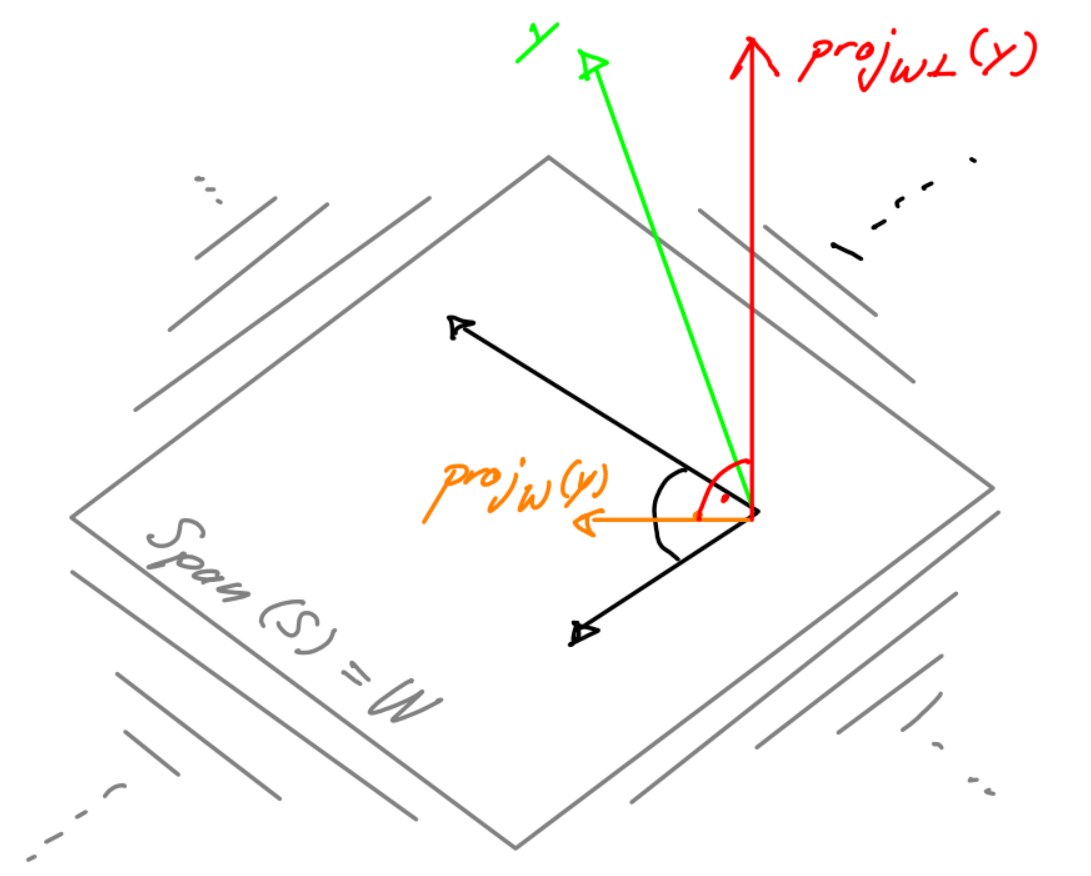 y
proj_W⊥(y)
proj_W(y)
Span(S) = W